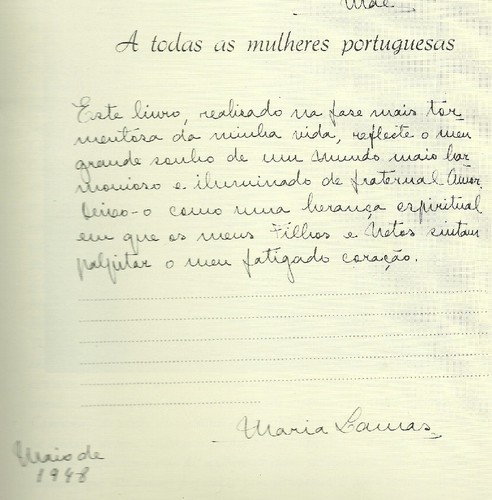 Mãe
A todas as mulheres portuguesas
Este livro, realisado na fase mais tor
mentosa da minha vida, reflecte o meu
grande sonho de um mundo mais har
monioso e iluminado de fraternal Amor.
Deixo-o como uma herança espiritual
em que os meus Filhos e Netos sintam
palpitar o meu fatigado coração.
Maria Lamas
Maio de
1948